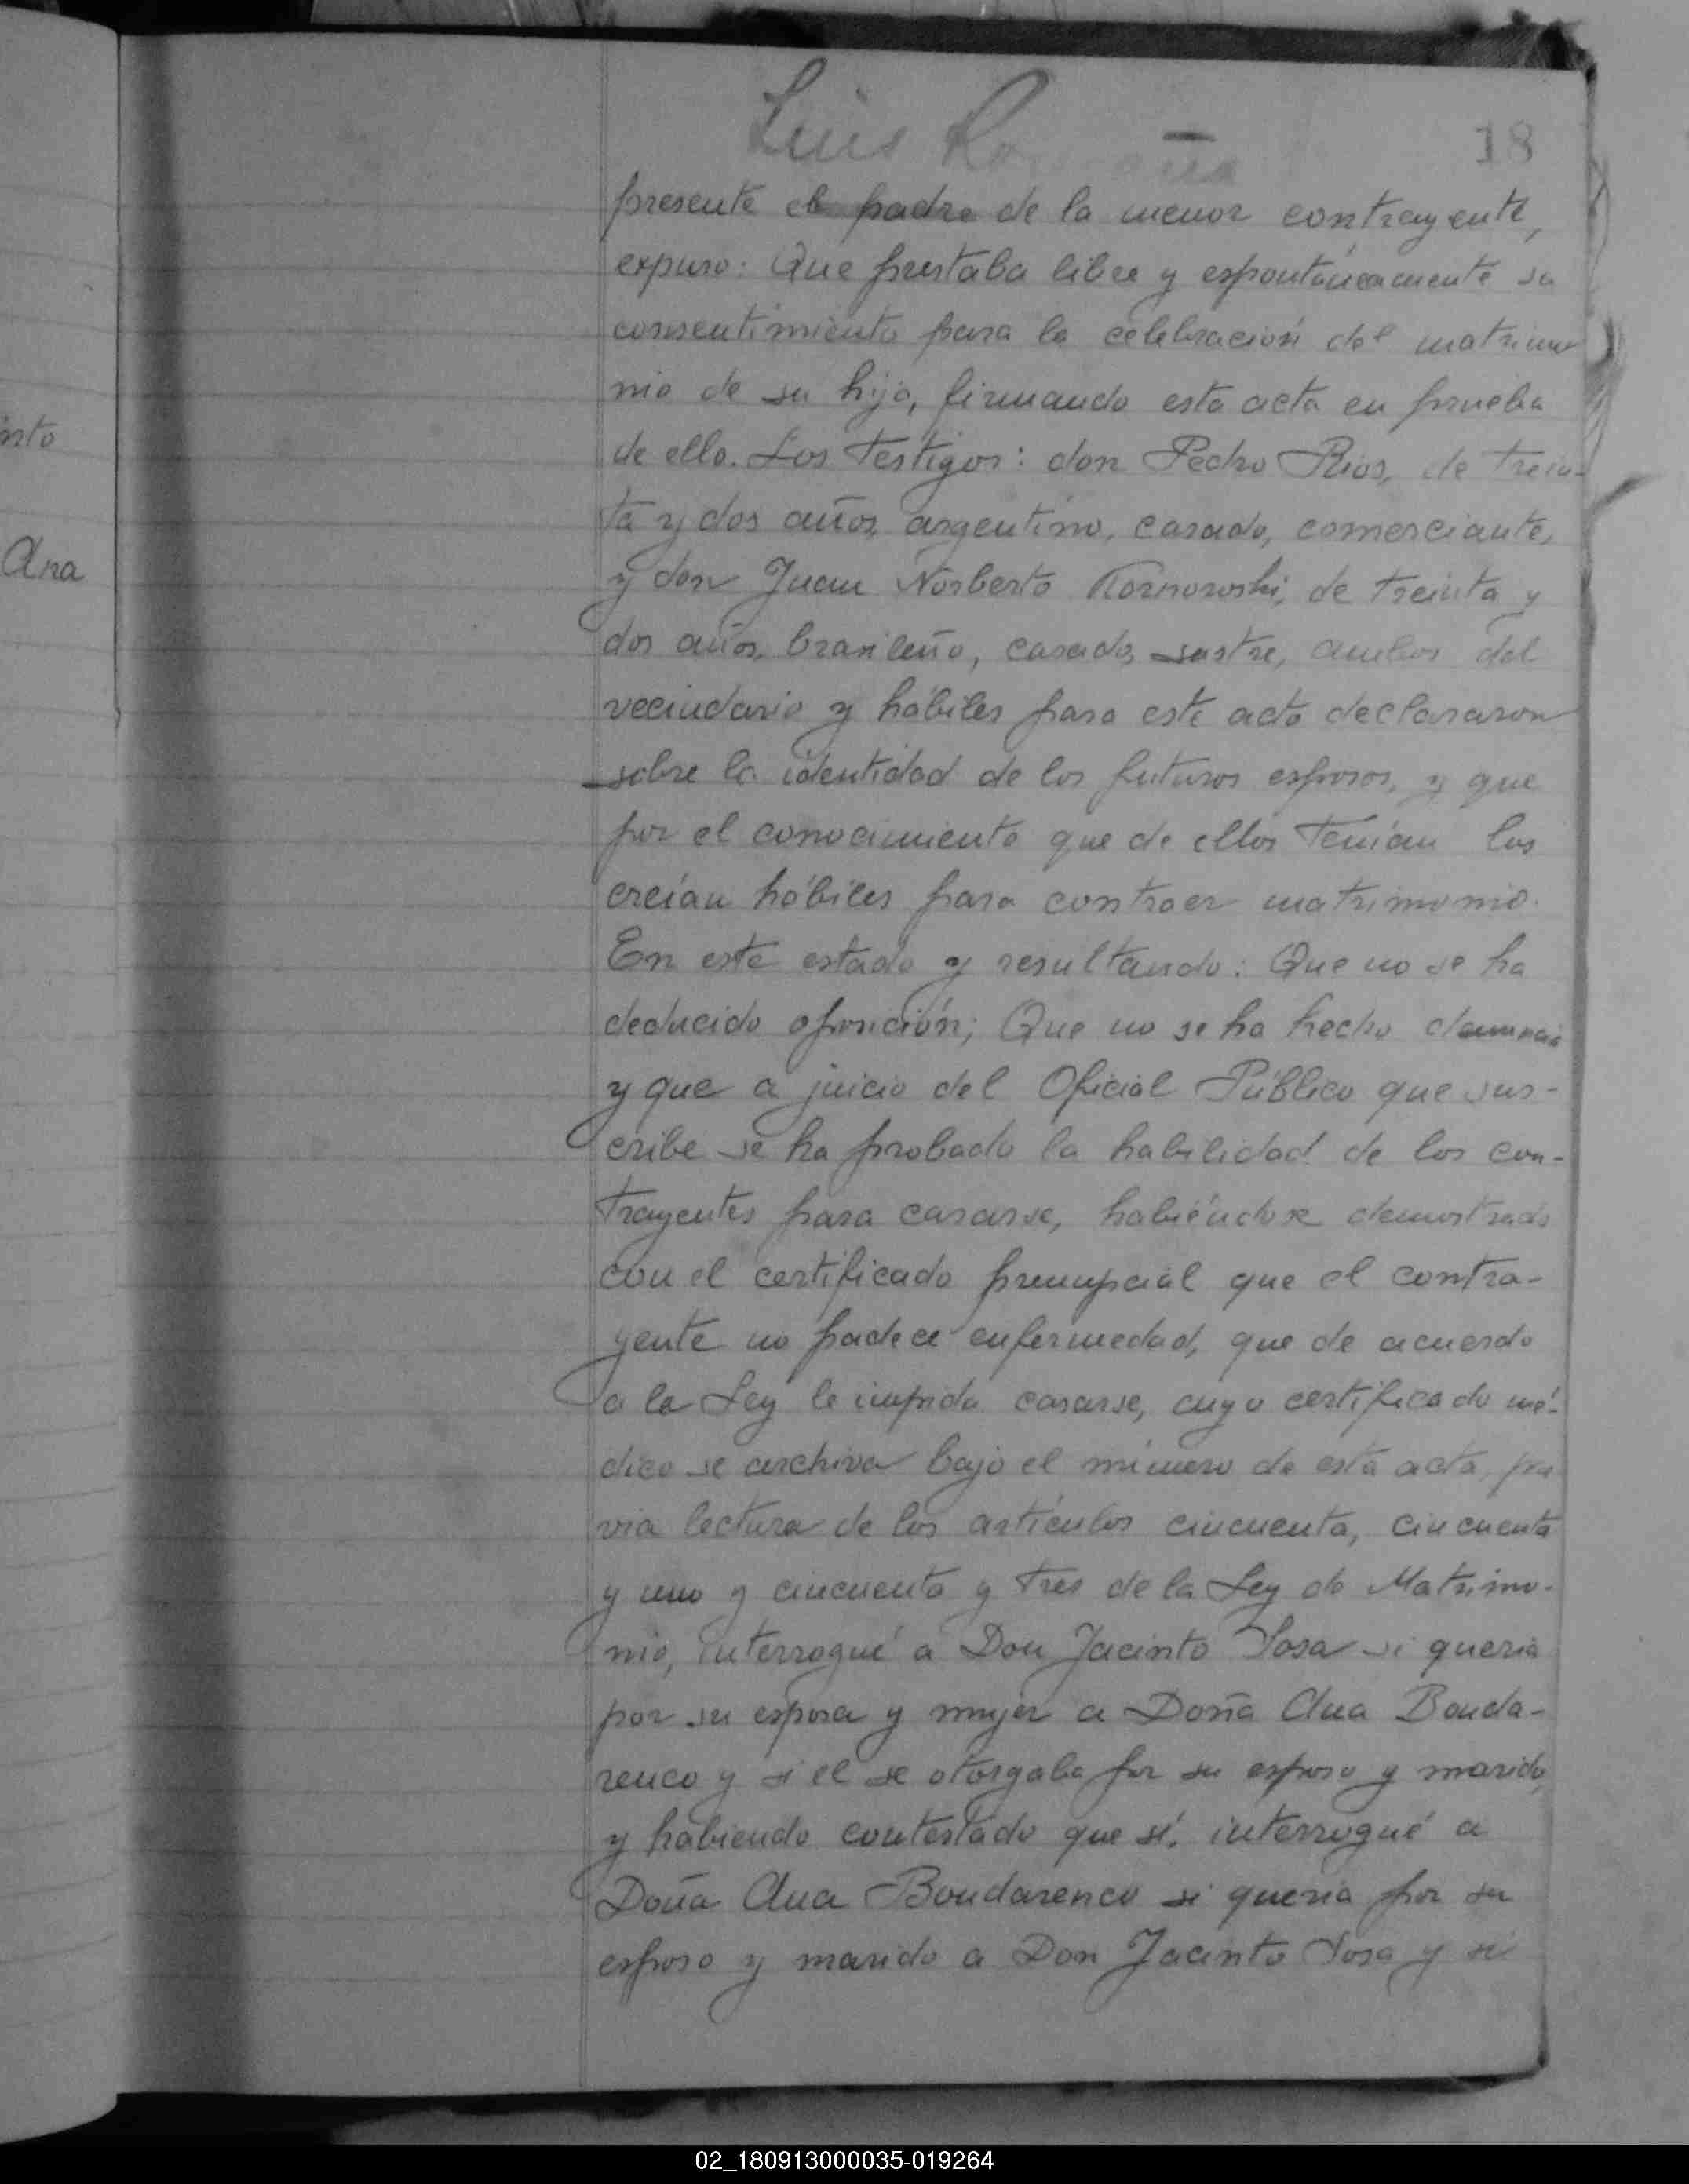 Luis
18
presente el padre de la menor contrayente,
expuso: Que prestaba libre y espontáneamente su
consentimiento para la celebración del matrimo
nio de su hija, firmando esta acta en prueba
de ello. Los Testigos: don Pedro Rios, de trein-
ta y dos años, argentino, casado, comerciante,
y don Juan Norberto de treinta y
dos años, brasileño, casado, sastre, ambos del
vecindario y hábiles para este acto declararon
sobre la identidad de los futuros esposos, y que
por el conocimiento que de ellos Tenían los
creían hábiles para contraer matrimonio.
En este estado y resultando: Que no se ha
deducido oposición; Que no se ha hecho denuncia
y que a juicio del Oficial Público que sus-
cribe se ha probado la habilidad de los con-
trayentes para casarse, habiéndose demostrado
con el certificado prenupcial que el contra-
yente no padece enfermedad, que de acuerdo
a la Ley le impida casarse, cuyo certificado mé-
dico se archiva bajo el número de esta acta, pre
via lectura de los artículos cincuenta, cincuenta
y uno y cincuenta y tres de la Ley de Matrimo-
nio, interrogué a Don Jacinto Sosa si queria
por su esposa y mujer a Doña Ana Bonda-
renco y si el se otorgaba por su esposo y marido,
y habiendo contestado que sí, interrogué a
Doña Ana Bondarenco si queria por su
esposo y marido a Don Jacinto Sosa y si
nto
Ana
02_180913000035-019264